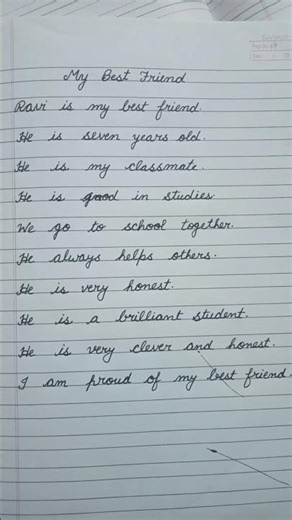 My Best Friend
Ravi is my best friend.
He is seven years old.
He is my classmate.
He is good in studies
We go to school together.
He always helps others.
He is very honest.
He is a brilliant student.
He is very clever and honest.
I am proud of my best friend.